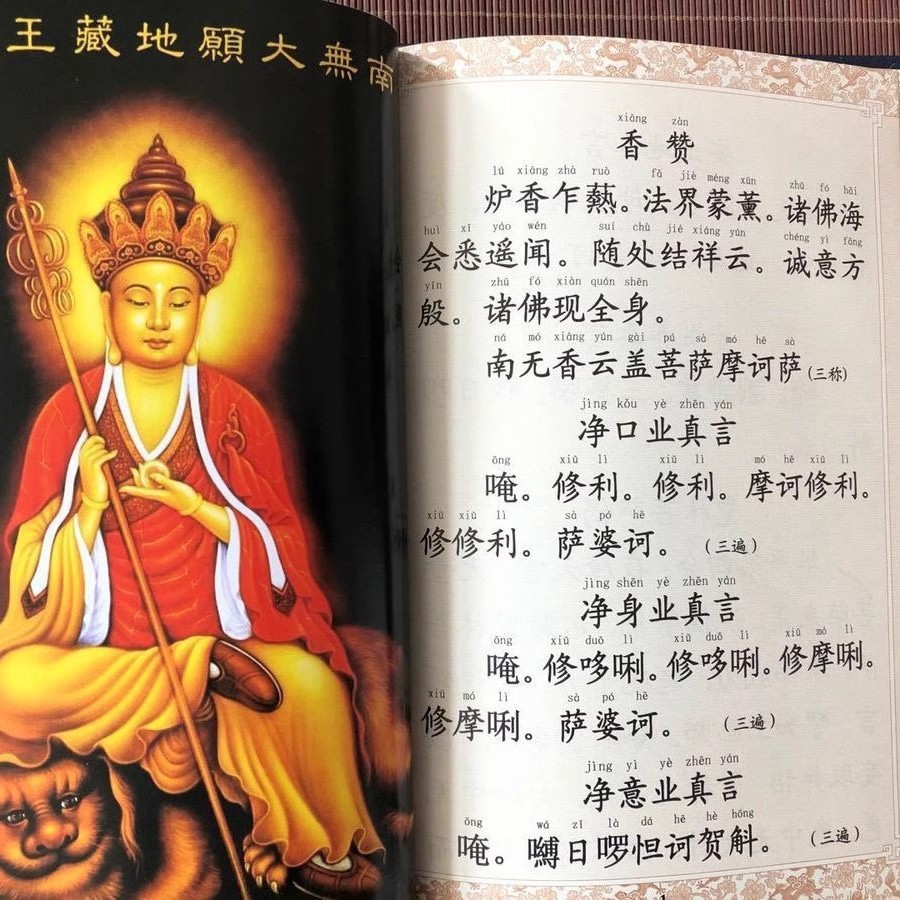 南無大願地藏王
xiāng zàn
香赞
lú xiāng zhà ruò fǎ jiè méng xūn zhū fó hǎi
炉香乍爇。法界蒙薰。诸佛海
huì xī yáo wén suí chù jié xiáng yún chéng yì fāng
会悉遥闻。随处结祥云。诚意方
yīn zhū fó xiàn quán shēn
殷。诸佛现全身。
ná mó xiāng yún gài pú sà mó hē sà
南无香云盖菩萨摩诃萨(三称)
jìng kǒu yè zhēn yán
净口业真言
ōng xiū lì xiū lì mó hē xiū lì
唵。修利。修利。摩诃修利。
xiū xiū lì sà pó hē
修修利。萨婆诃。(三遍)
jìng shēn yè zhēn yán
净身业真言
ōng xiū duō lì xiū duō lì xiū mó lì
唵。修哆唎。修哆唎。修摩唎。
xiū mó lì sà pó hē
修摩唎。萨婆诃。(三遍)
jìng yì yè zhēn yán
净意业真言
ōng wá zī là dá hē hè hōng
唵。嚩日啰怛诃贺斛。(三遍)